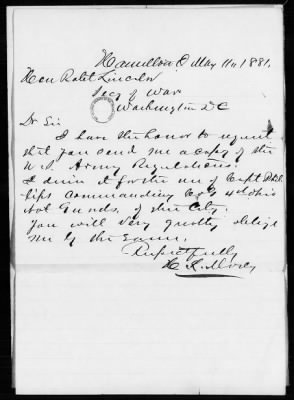 Hamilton O May 11th 1881.
Hon Robt Lincoln
Secy of War
Washington D.C
Dr Sir
I have the honor to request
that you send me a copy of the
U.S. Army Regulations.
I desire it for the use of Capt Phil
lips commanding Co 4th Ohio
Nat Guards, of this City.
You will very greatly oblige
me by the same.
Respectfully
H. L. Morey